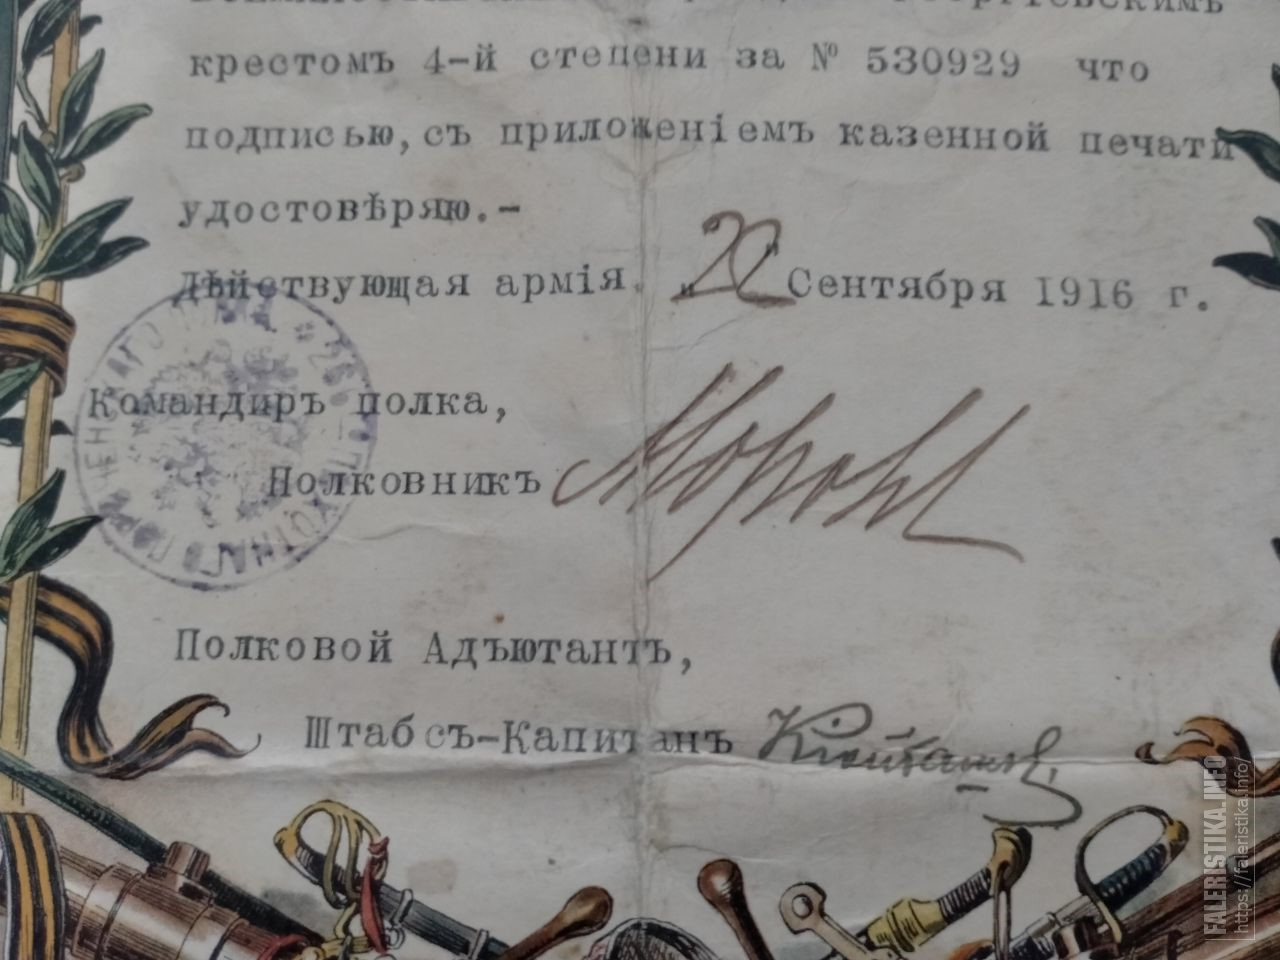 крестомъ 4-й степени за № 530929 что
подписью, съ приложеніемъ казенной печати
удостовѣряю.-
Дѣйствующая армія. „22" Сентября 1916 г.
Командиръ полка,
Полковникъ
Полковой Адъютантъ,
Штабсъ-Капитанъ
FALERISTIKA.INFO
https://faleristika.info/